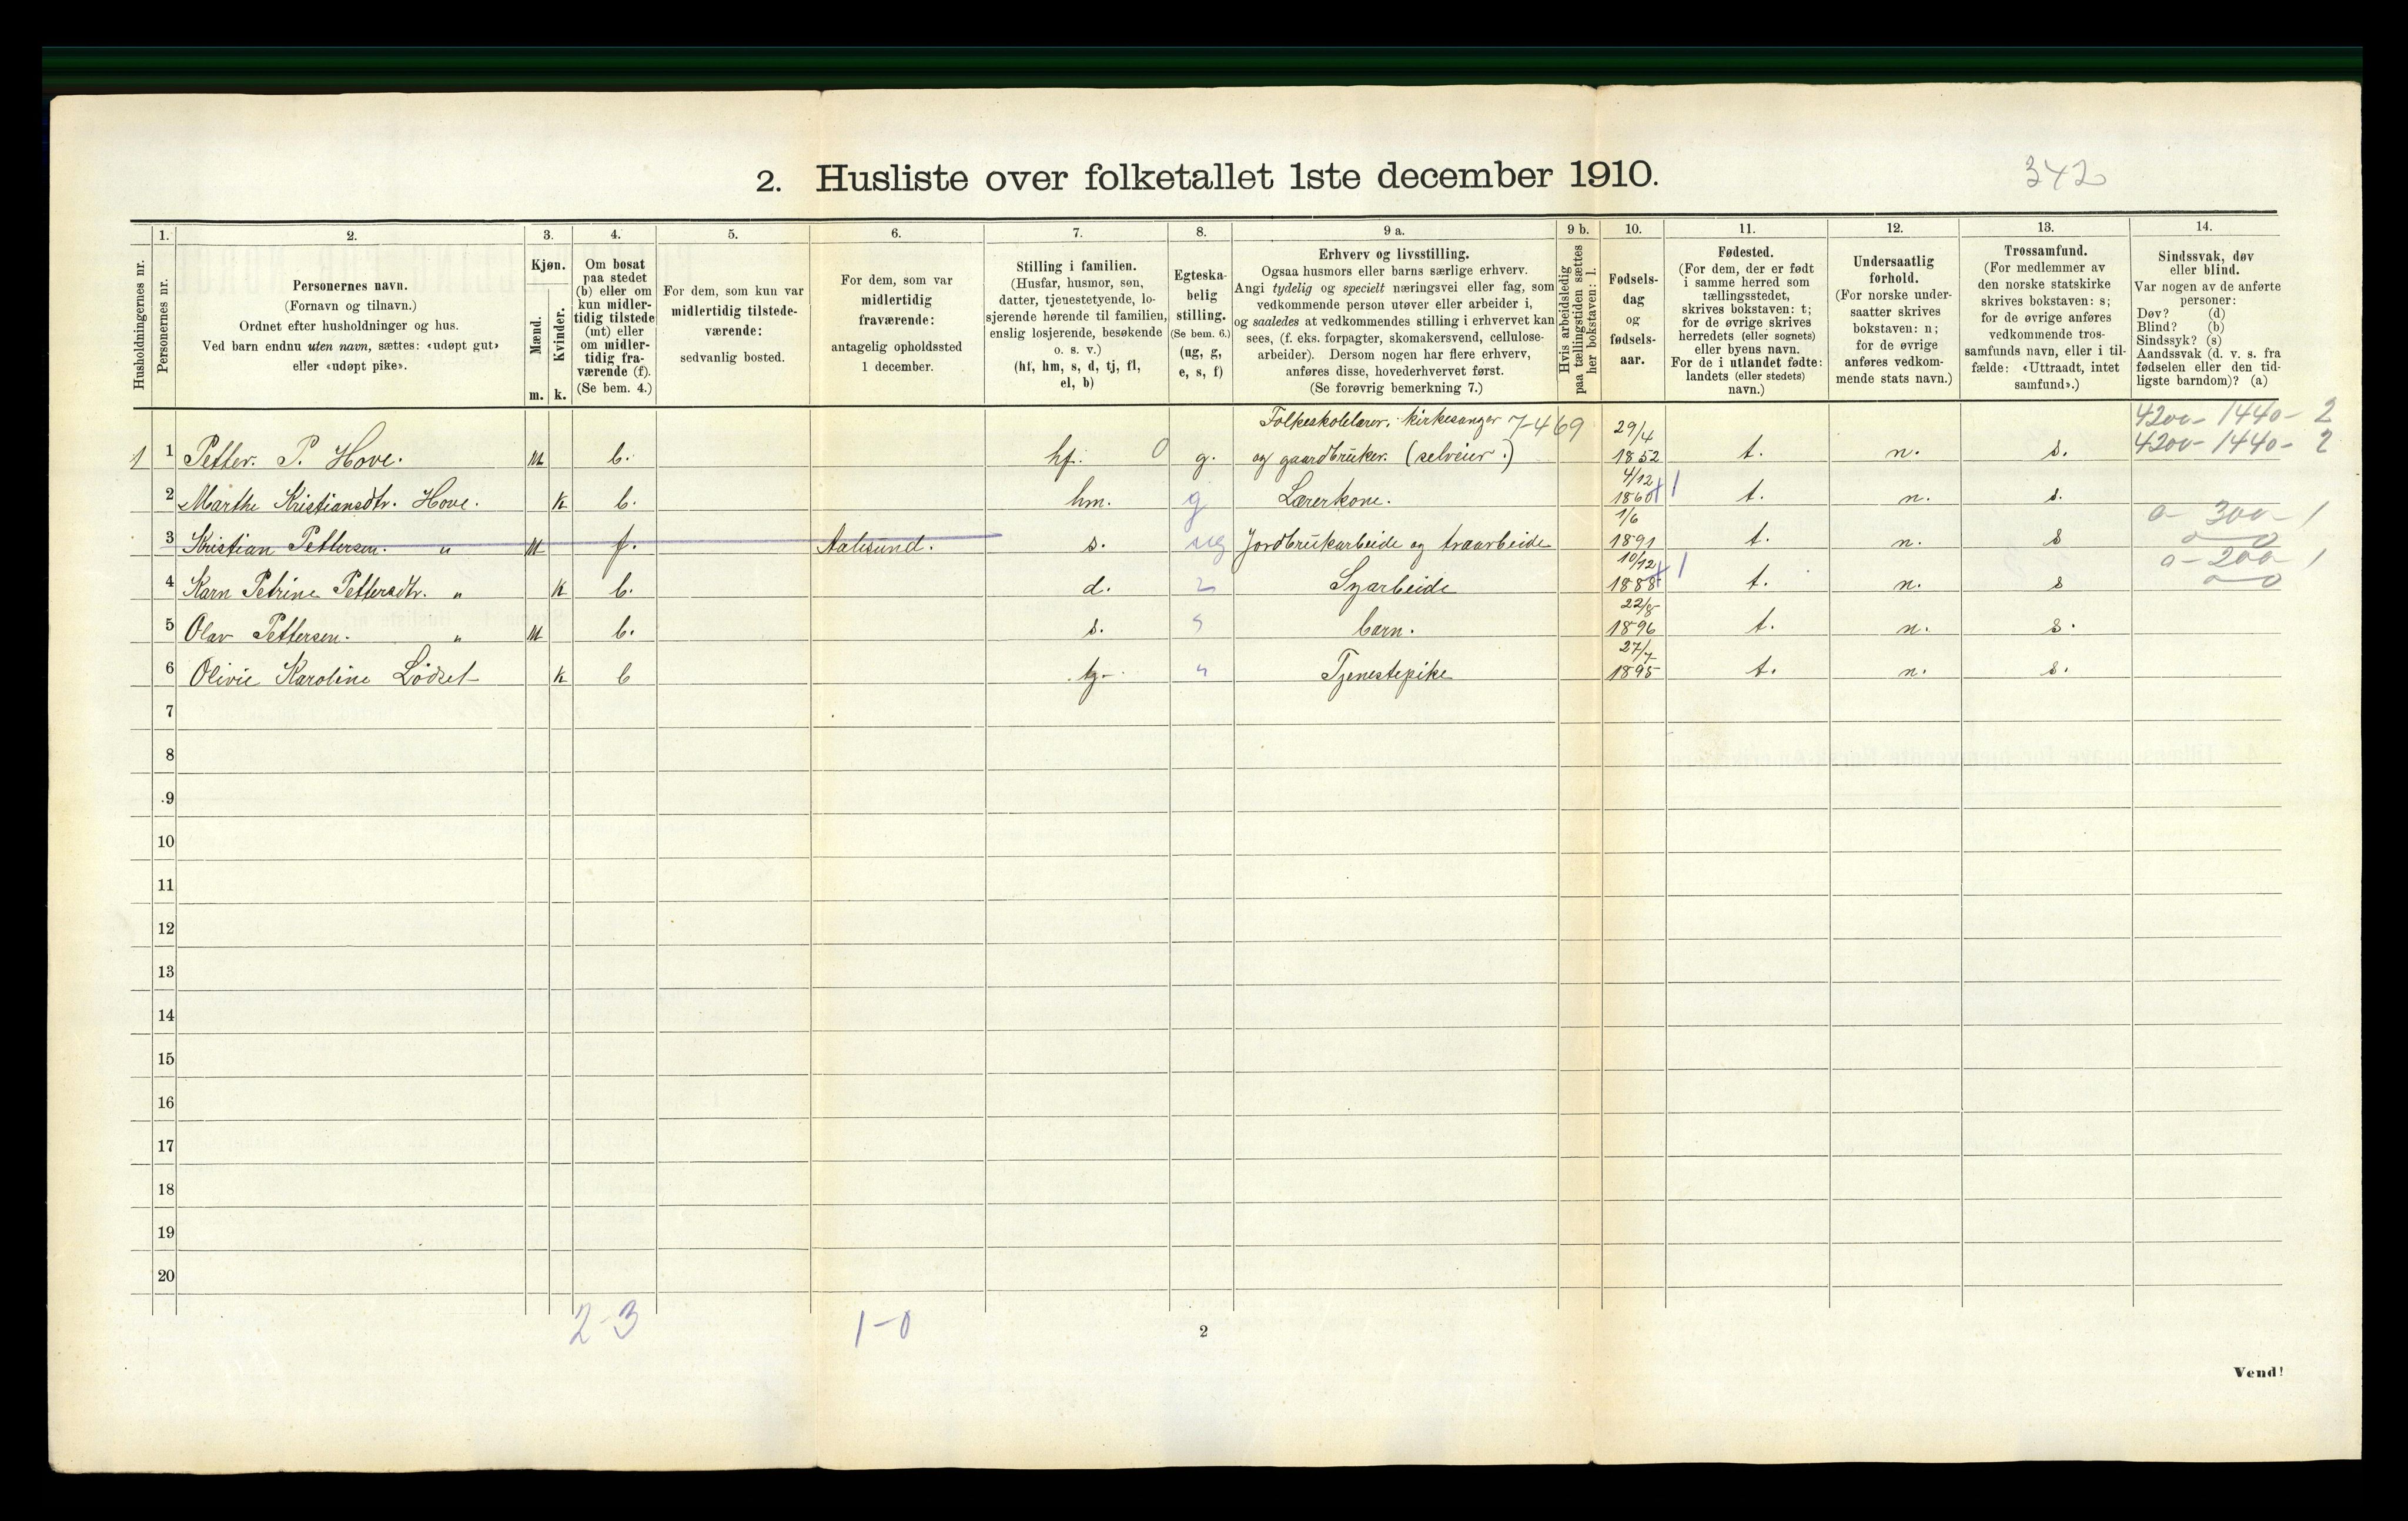 2. Husliste over folketallet 1ste december 1910.
342
1. 2. 3. 4. 5. 6. 7. 8. 9 a. 9 b. 10. 11. 12. 13. 14.
Husholdningernes nr.
Personernes nr.
Personernes navn.
(Fornavn og tilnavn.)
Ordnet efter husholdninger og hus.
Ved barn endnu uten navn, sættes: «udøpt gut»
eller «udøpt pike».
Kjøn.
Mænd.
Kvinder.
m. k.
Om bosat
paa stedet
(b) eller om
kun midler-
tidig tilstede
(mt) eller
om midler-
tidig fra-
værende (f).
(Se bem. 4.)
For dem, som kun var
midlertidig tilstede-
værende:
sedvanlig bosted.
For dem, som var
midlertidig
fraværende:
antagelig opholdssted
1 december.
Stilling i familien.
(Husfar, husmor, søn,
datter, tjenestetyende, lo-
sjerende hørende til familien,
enslig losjerende, besøkende
o. s. v.)
(hf, hm, s, d, tj, fl,
el, b)
Egteska-
belig
stilling.
(Se bem. 6.)
(ug, g,
e, s, f)
Erhverv og livsstilling.
Ogsaa husmors eller barns særlige erhverv.
Angi tydelig og specielt næringsvei eller fag, som
vedkommende person utøver eller arbeider i,
og saaledes at vedkommendes stilling i erhvervet kan
sees, (f. eks. forpagter, skomakersvend, cellulose-
arbeider). Dersom nogen har flere erhverv,
anføres disse, hovederhvervet først.
(Se forøvrig bemerkning 7.)
Hvis arbeidsledig
paa tællingstiden sættes
her bokstaven: l.
Fødsels-
dag
og
fødsels-
aar.
Fødested.
(For dem, der er født
i samme herred som
tællingsstedet,
skrives bokstaven: t;
for de øvrige skrives
herredets (eller sognets)
eller byens navn.
For de i utlandet fødte:
landets (eller stedets)
navn.)
Undersaatlig
forhold.
(For norske under-
saatter skrives
bokstaven: n;
for de øvrige
anføres vedkom-
mende stats navn.)
Trossamfund.
(For medlemmer av
den norske statskirke
skrives bokstaven: s;
for de øvrige anføres
vedkommende tros-
samfunds navn, eller i til-
fælde: «Uttraadt, intet
samfund».)
Sindssvak, døv
eller blind.
Var nogen av de anførte
personer:
Døv? (d)
Blind? (b)
Sindssyk? (s)
Aandssvak (d. v. s. fra
fødselen eller den tid-
ligste barndom)? (a)
Folkeskolelærer, kirkesanger 7-469 29/4 4200- 1440- 2
1 1 Petter. P. Hove. m b. hf. 0 g. og gaardbruker. (selveier.) 1852 t. n. s. 4200- 1440- 2
4/12
2 Marthe Kristiansdtr. Hove. k b. hm. g Lærerkone. 1860 1 t. n. s.
1/6 0- 300- 1
3 Kristian Pettersen. " m f. Aalesund. s. ug Jordbrukarbeide og træarbeide 1891 t. n. s 0-0
10/12 0-200 1
4 Karn Petrine Pettersdtr. " k b. d. Syarbeide 1888 1 t. n. s 0-0
22/8
5 Olav Pettersen. " m b. s. barn. 1896 t. n. s.
27/7
6 Olivie Karoline Lødset k b tj. Tjenestepike 1895 t. n. s.
7
8
9
10
11
12
13
14
15
16
17
18
19
20
2-3 1-0
2
Vend!